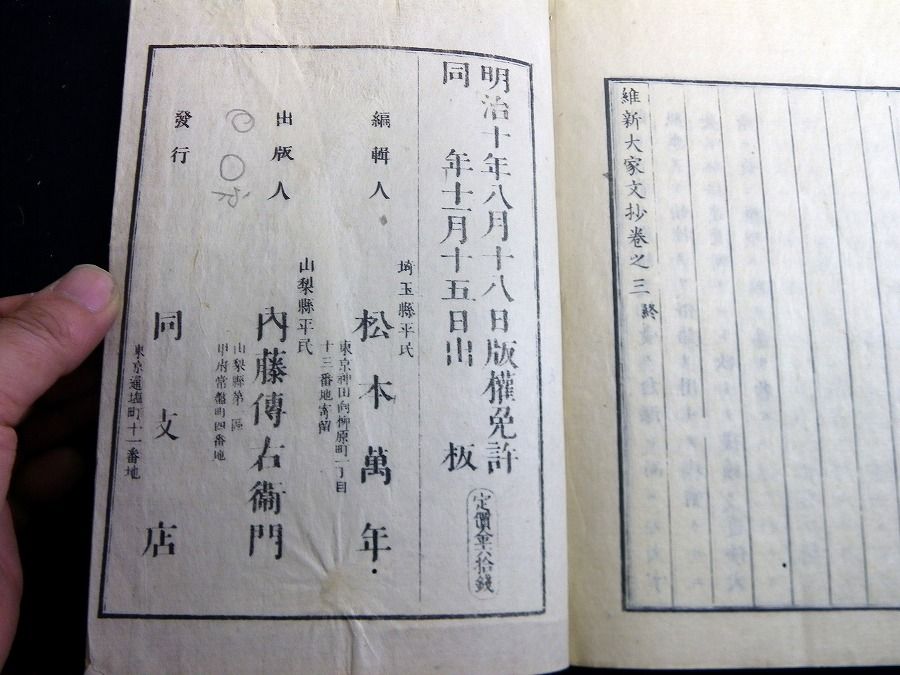 維新大家文抄卷之三 終
明治十年八月十八日版權免許
同 年十一月十五日出 板
定價金六拾錢
編輯人
埼玉縣平民
松本萬年
東京神田向柳原町一丁目
十三番地寄留
出版人
山梨縣平民
內藤傳右衞門
山梨縣第一區
甲府常盤町四番地
發行
同支店
東京通塩町十一番地